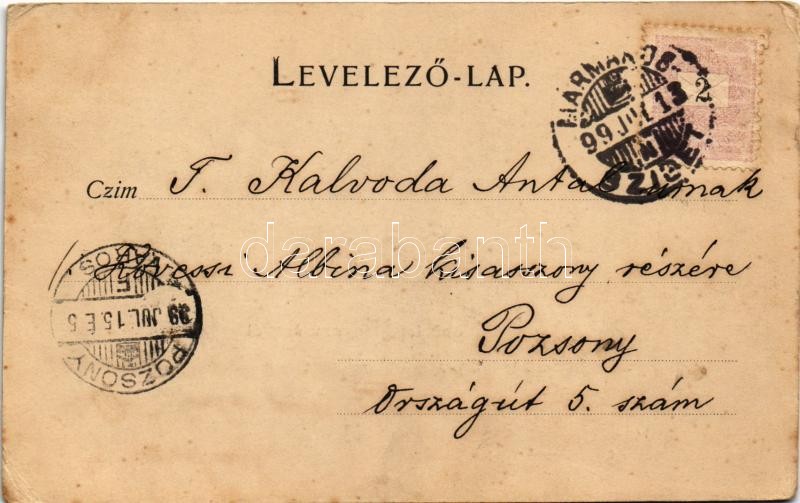 LEVELEZŐ-LAP.
MÁRMAROS-SZIGET
99 JUL 13
2
Czim T. Kalvoda Antal úrnak
Kövessi Albina kisasszony részére
Pozsony
Országút 5. szám
POZSONY VÁROS
99 JUL. 15. É. 5
E
darabanth